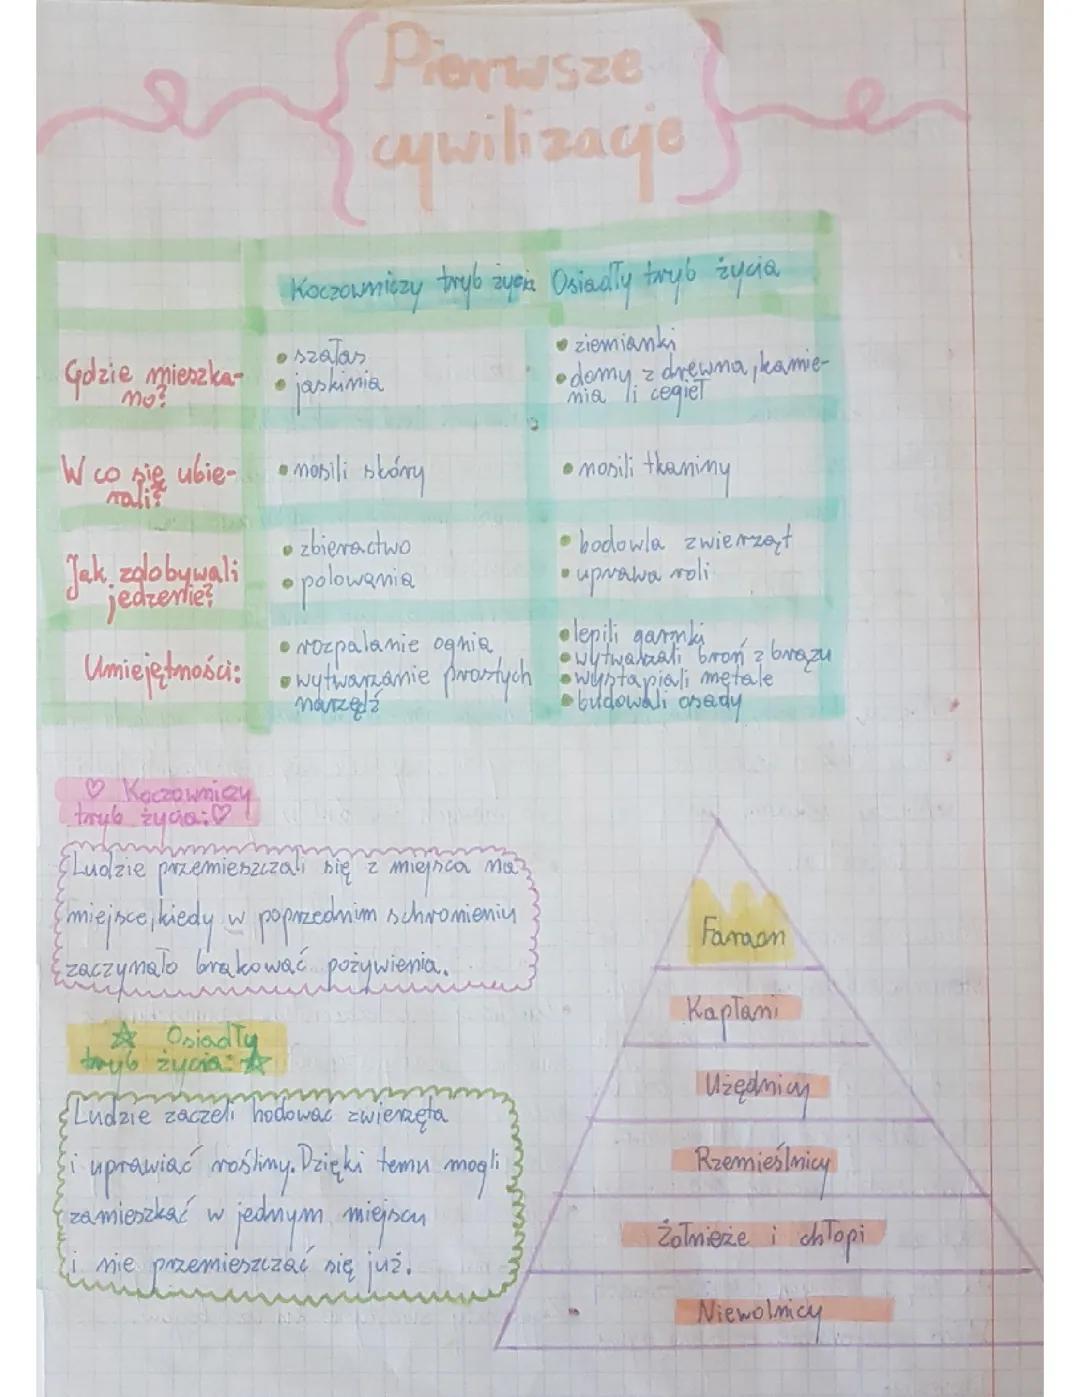 Pierwsze
cywilizacje
Koczowniczy tryb życia
Osiadły tryb życia
Gdzie mieszka-
no?
• szałas
• jaskinia
• ziemianki
• domy z drewna, kamie-
nia i cegieł
W co się ubie-
rali?
• nosili skóry
• nosili tkaniny
Jak zdobywali
jedzenie?
• zbieractwo
• polowania
• hodowla zwierząt
• uprawa roli
Umiejętności:
• rozpalanie ognia
• wytwarzanie prostych
narzędź
• lepili garnki
• wytwarzali broń z brązu
• wystapiali metale
• budowali osady
♡ Koczowniczy
tryb życia: ♡
Ludzie przemieszczali się z miejsca na
miejsce, kiedy w poprzednim schronieniu
zaczynało brakować pożywienia.
☆ Osiadły
tryb życia: ☆
Ludzie zaczeli hodować zwierzęta
i uprawiać rośliny. Dzięki temu mogli
zamieszkać w jednym miejscu
i nie przemieszczać się już.
Faraon
Kapłani
Użędnicy
Rzemieślnicy
Żołnieże i chłopi
Niewolnicy